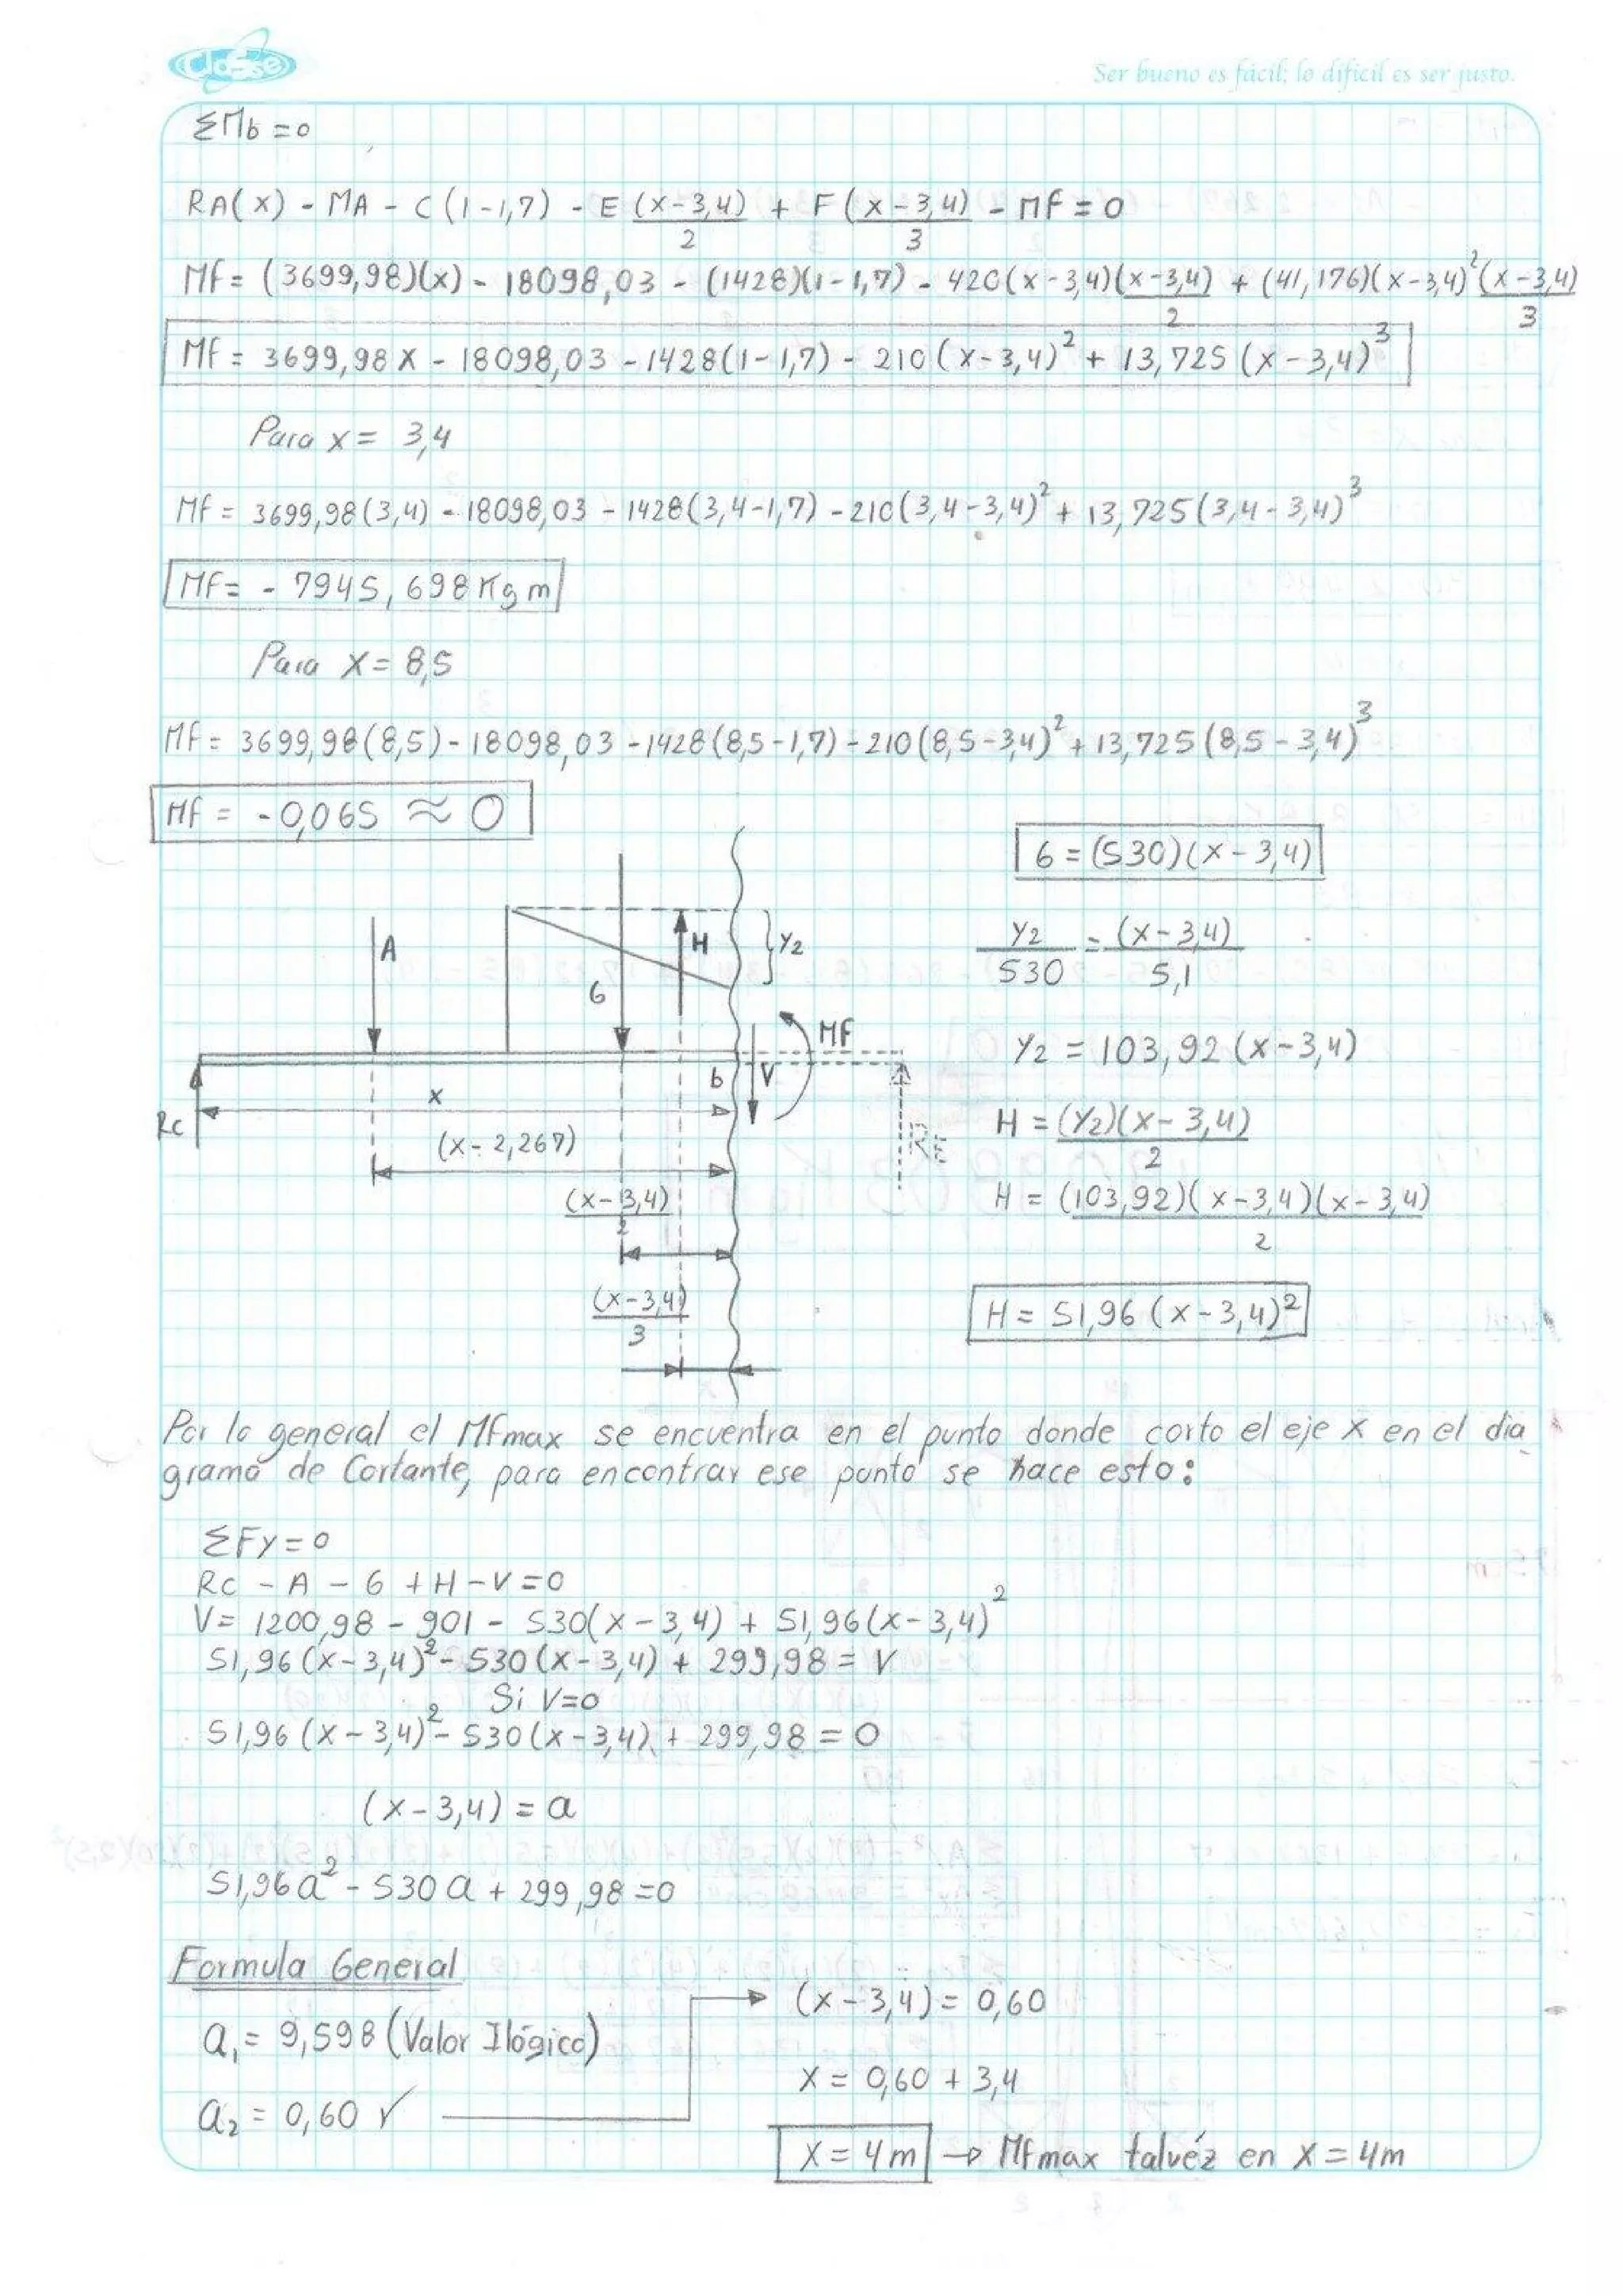 Classe
Ser bueno es fácil; lo difícil es ser justo.
ΣMb = 0
RA(x) - MA - C(1-1,7) - E (x-3,4)/2 + F (x-3,4)/3 - Mf = 0
Mf = (3699,98)(x) - 18098,03 - (1428)(1-1,7) - 420(x-3,4)(x-3,4)/2 + (41,176)(x-3,4)²(x-3,4)/3
Mf = 3699,98 x - 18098,03 - 1428(1-1,7) - 210(x-3,4)² + 13,725(x-3,4)³
Para x = 3,4
Mf = 3699,98(3,4) - 18098,03 - 1428(3,4-1,7) - 210(3,4-3,4)² + 13,725(3,4-3,4)³
Mf = - 7945,698 Kg m
Para x = 8,5
Mf = 3699,98(8,5) - 18098,03 - 1428(8,5-1,7) - 210(8,5-3,4)² + 13,725(8,5-3,4)³
Mf = -0,065 ≈ 0
6 = (530)(x-3,4)
A
6
H
Y2
Y2/530 = (x-3,4)/5,1
MF
Y2 = 103,92 (x-3,4)
b
V
x
Rc
RE
H = (Y2)(x-3,4)/2
(x-2,267)
(x-3,4)/2
H = (103,92)(x-3,4)(x-3,4)/2
(x-3,4)/3
H = 51,96 (x-3,4)²
Por lo general el Mfmax se encuentra en el punto donde corto el eje x en el dia
grama de Cortante, para encontrar ese punto se hace esto:
ΣFy = 0
Rc - A - 6 + H - V = 0
V = 1200,98 - 901 - 530(x-3,4) + 51,96(x-3,4)²
51,96(x-3,4)² - 530(x-3,4) + 299,98 = V
Si V=0
51,96(x-3,4)² - 530(x-3,4) + 299,98 = 0
(x-3,4) = a
51,96a² - 530a + 299,98 = 0
Formula General
a₁ = 9,598 (Valor Ilógico)
(x-3,4) = 0,60
x = 0,60 + 3,4
a₂ = 0,60 ✓
x = 4m → Mfmax talvéz en x = 4m